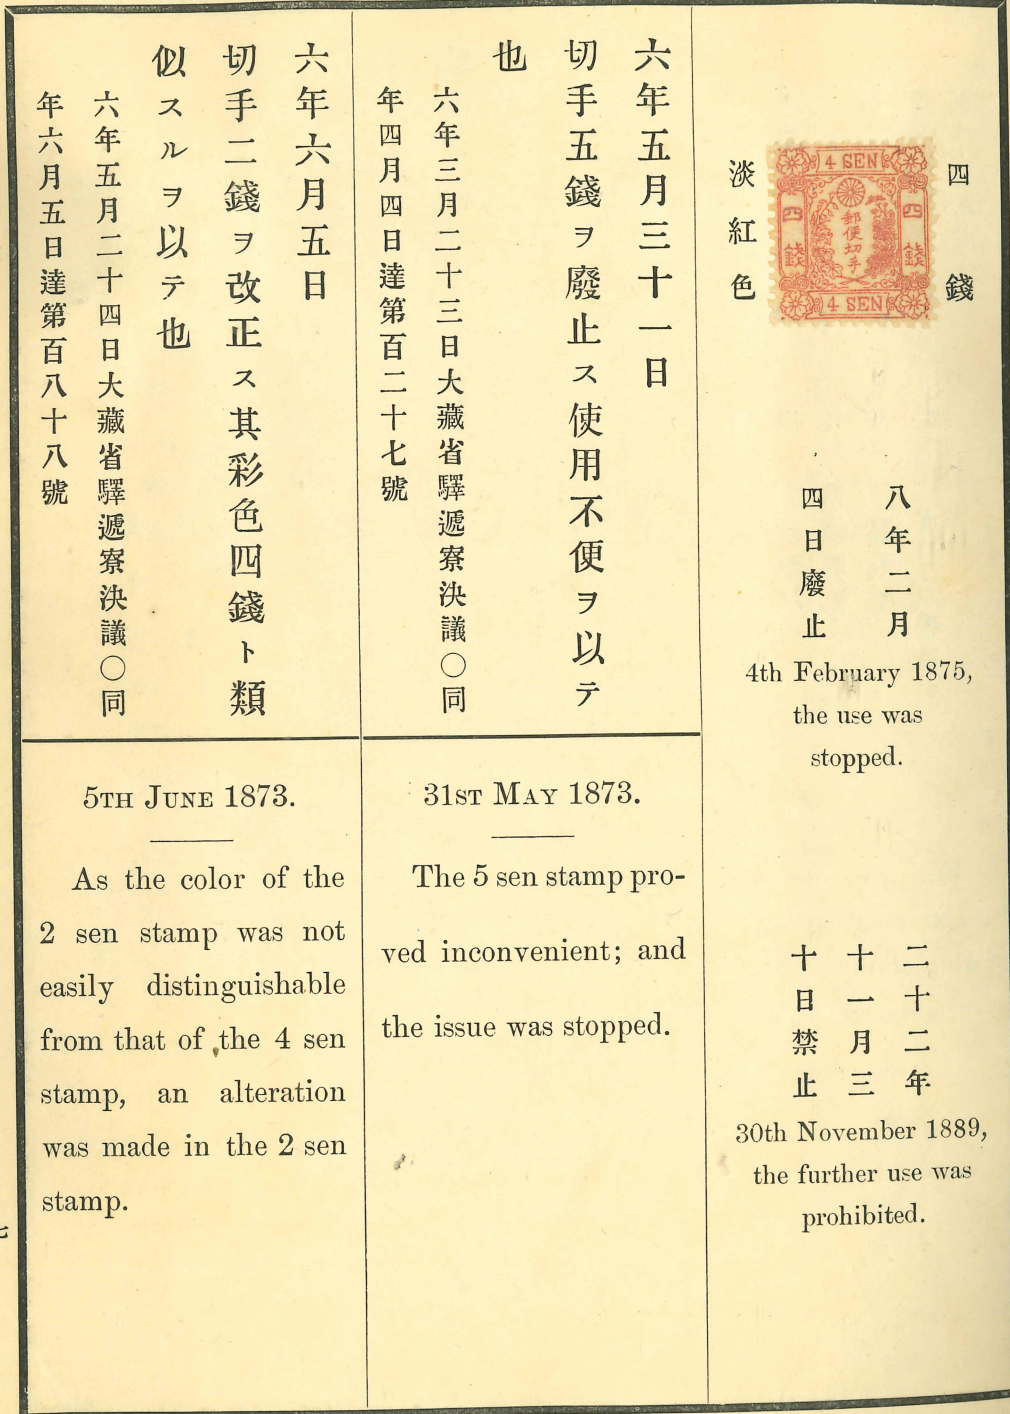 四錢
淡紅色
4 SEN
四錢
郵便切手
四錢
4 SEN
八年二月
四日廢止
4th February 1875,
the use was
stopped.
二十二年
十一月三
十日禁止
30th November 1889,
the further use was
prohibited.
六年五月三十一日
切手五錢ヲ廢止ス使用不便ヲ以テ
也
六年三月二十三日大藏省驛遞寮決議〇同
年四月四日達第百二十七號
31ST MAY 1873.
The 5 sen stamp pro-
ved inconvenient; and
the issue was stopped.
六年六月五日
切手二錢ヲ改正ス其彩色四錢ト類
似スルヲ以テ也
六年五月二十四日大藏省驛遞寮決議〇同
年六月五日達第百八十八號
5TH JUNE 1873.
As the color of the
2 sen stamp was not
easily distinguishable
from that of the 4 sen
stamp, an alteration
was made in the 2 sen
stamp.
七